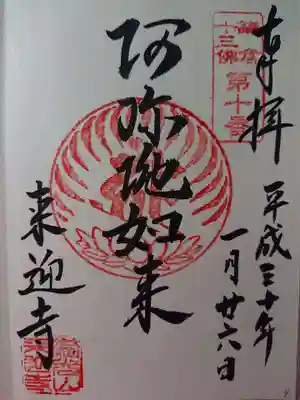 奉拝
鎌倉
十三佛
第十番
平成三十年
一月廿六日
阿弥陁如来
来迎寺